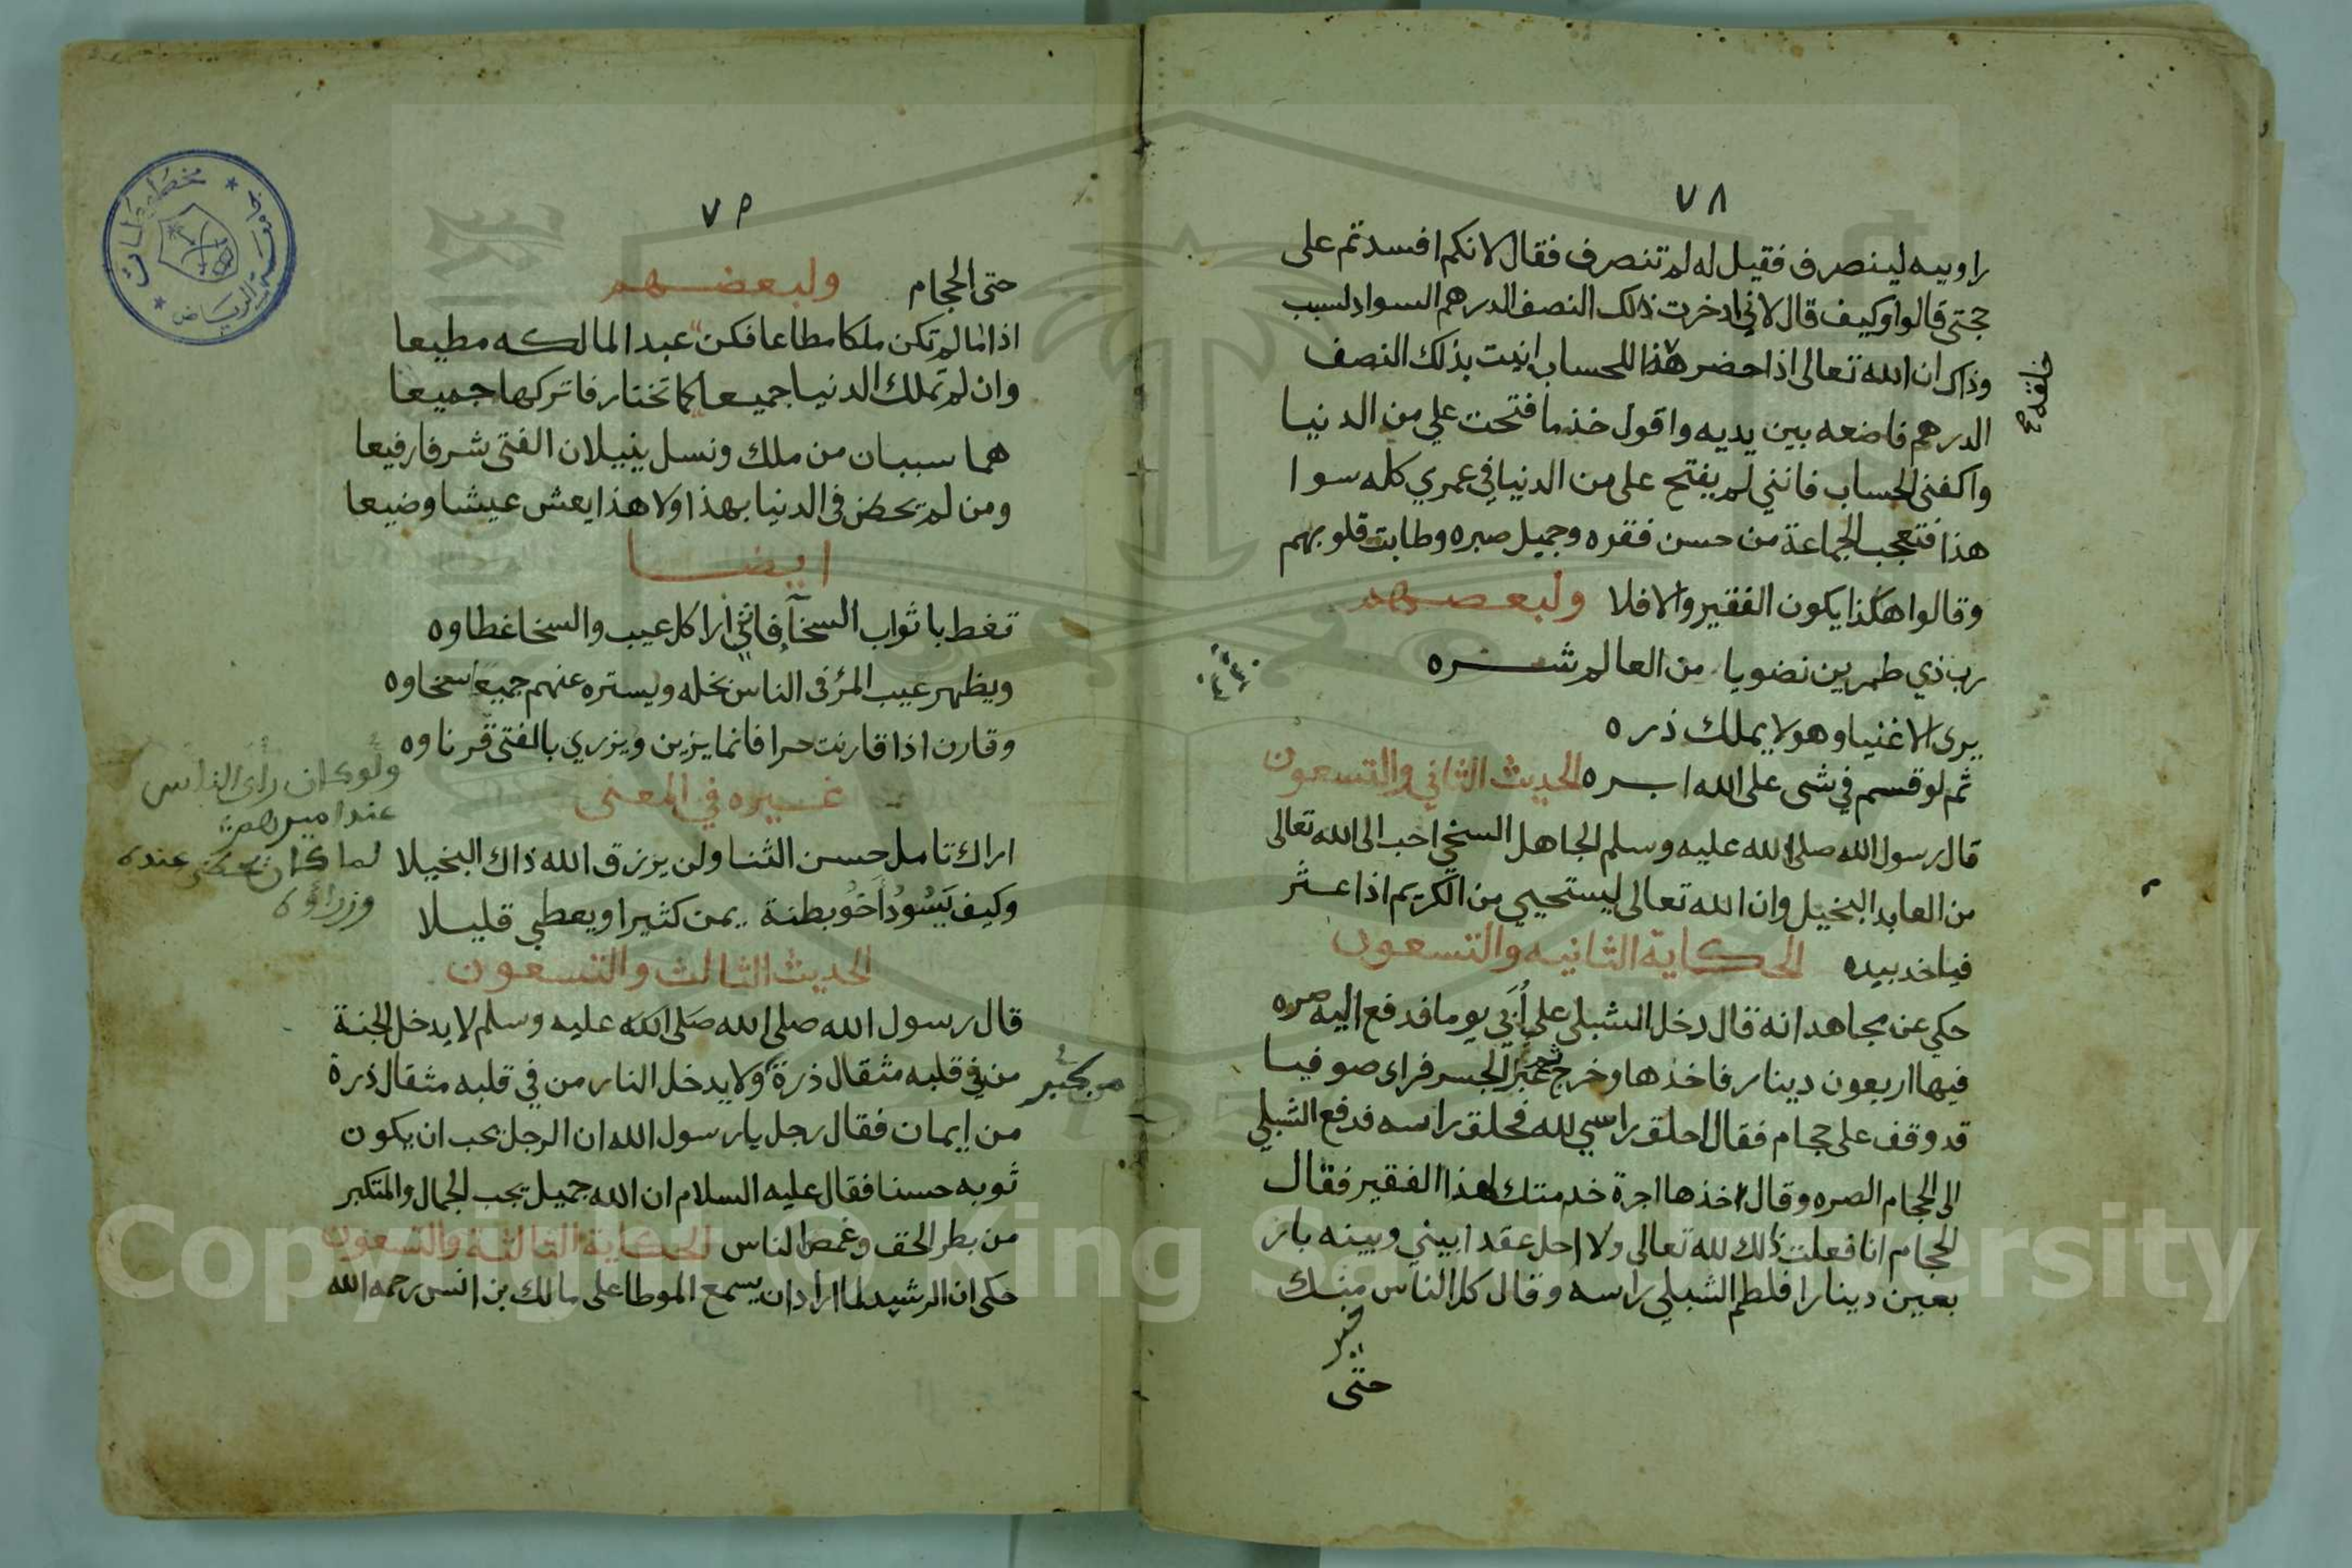 ٧٨
راوييه لينصرف فقيل له لم تنصرف فقال لانكم افسدتم على
حجتى قالوا وكيف قال لاني ادخرت ذلك النصف الدرهم السواد لسبب
وذاك ان الله تعالى اذا حضر هذا للحساب اتيت بذلك النصف
الدرهم فاضعه بين يديه واقول خذ ما فتحت علي من الدنيا
واكفنى الحساب فانني لم يفتح على من الدنيا في عمري كله سوا
هذا فتعجب الجماعة من حسن فقره وجميل صبره وطابت قلوبهم
وقالوا هكذا يكون الفقير والا فلا ولبعضهم
رب ذي طمرين نضويا من العالم شره
يرى الاغنيا وهو لا يملك ذره
ثم لو قسم في شى على الله ابره الحديث الثاني والتسعون
قال رسول الله صلى الله عليه وسلم الجاهل السخي احب الى الله تعالى
من العابد البخيل وان الله تعالى ليستحيي من الكريم اذا عثر
فياخد بيده الحكاية الثانيه والتسعون
حكي عن مجاهد انه قال دخل الشبلي على أبي يوما فدفع اليه صره
فيها اربعون دينار فاخذها وخرج ثم عبر الجسر فراى صوفيا
قد وقف على حجام فقال احلق راسي لله فحلق راسه فدفع الشبلي
الى الحجام الصره وقال خذها اجرة خدمتك لهذا الفقير فقال
الحجام انا فعلت ذلك لله تعالى ولا احل عقدا بيني وبينه بار
بعين دينارا فلطم الشبلي راسه وقال كل الناس منك
خير
حتى
٧٩
حتى الحجام ولبعضهم
اذا ما لم تكن ملكا مطاعا فكن عبدا لمالكه مطيعا
وان لم تملك الدنيا جميعا كما تختار فاتركها جميعا
هما سببان من ملك ونسل ينيلان الفتى شرفا رفيعا
ومن لم يحض في الدنيا بهذا ولا هذا يعش عيشا وضيعا
ايضا
تغط باثواب السخآ فاني ارا كل عيب والسخا غطاوه
ويظهر عيب المرء فى الناس بخله ويستره عنهم جميعا سخاوه
وقارن اذا قارنت حرا فانما يزين ويزري بالفتى قرناوه
ولو كان راى الناس
عند اميرهم
لما كان يحضى عنده
وزراؤه
غيره في المعنى
اراك تامل حسن الثنا ولن يرزق الله ذاك البخيلا
وكيف يَسُودُ أخُو بطنة يمن كثيرا ويعطي قليلا
الحديث الثالث والتسعون
قال رسول الله صلى الله صلى الله عليه وسلم لا يدخل الجنة
من في قلبه مثقال ذرة ولا يدخل النار من في قلبه مثقال ذرة
من كبر
من إيمان فقال رجل يا رسول الله ان الرجل يحب ان يكون
ثوبه حسنا فقال عليه السلام ان الله جميل يحب الجمال والمتكبر
من بطر الحق وغمص الناس الحكاية الثالثة والتسعون
حكى ان الرشيد لما اراد ان يسمع الموطا على مالك بن انس رحمه الله
مخطوطات
جامعة الرياض
Copyright © King Saud University